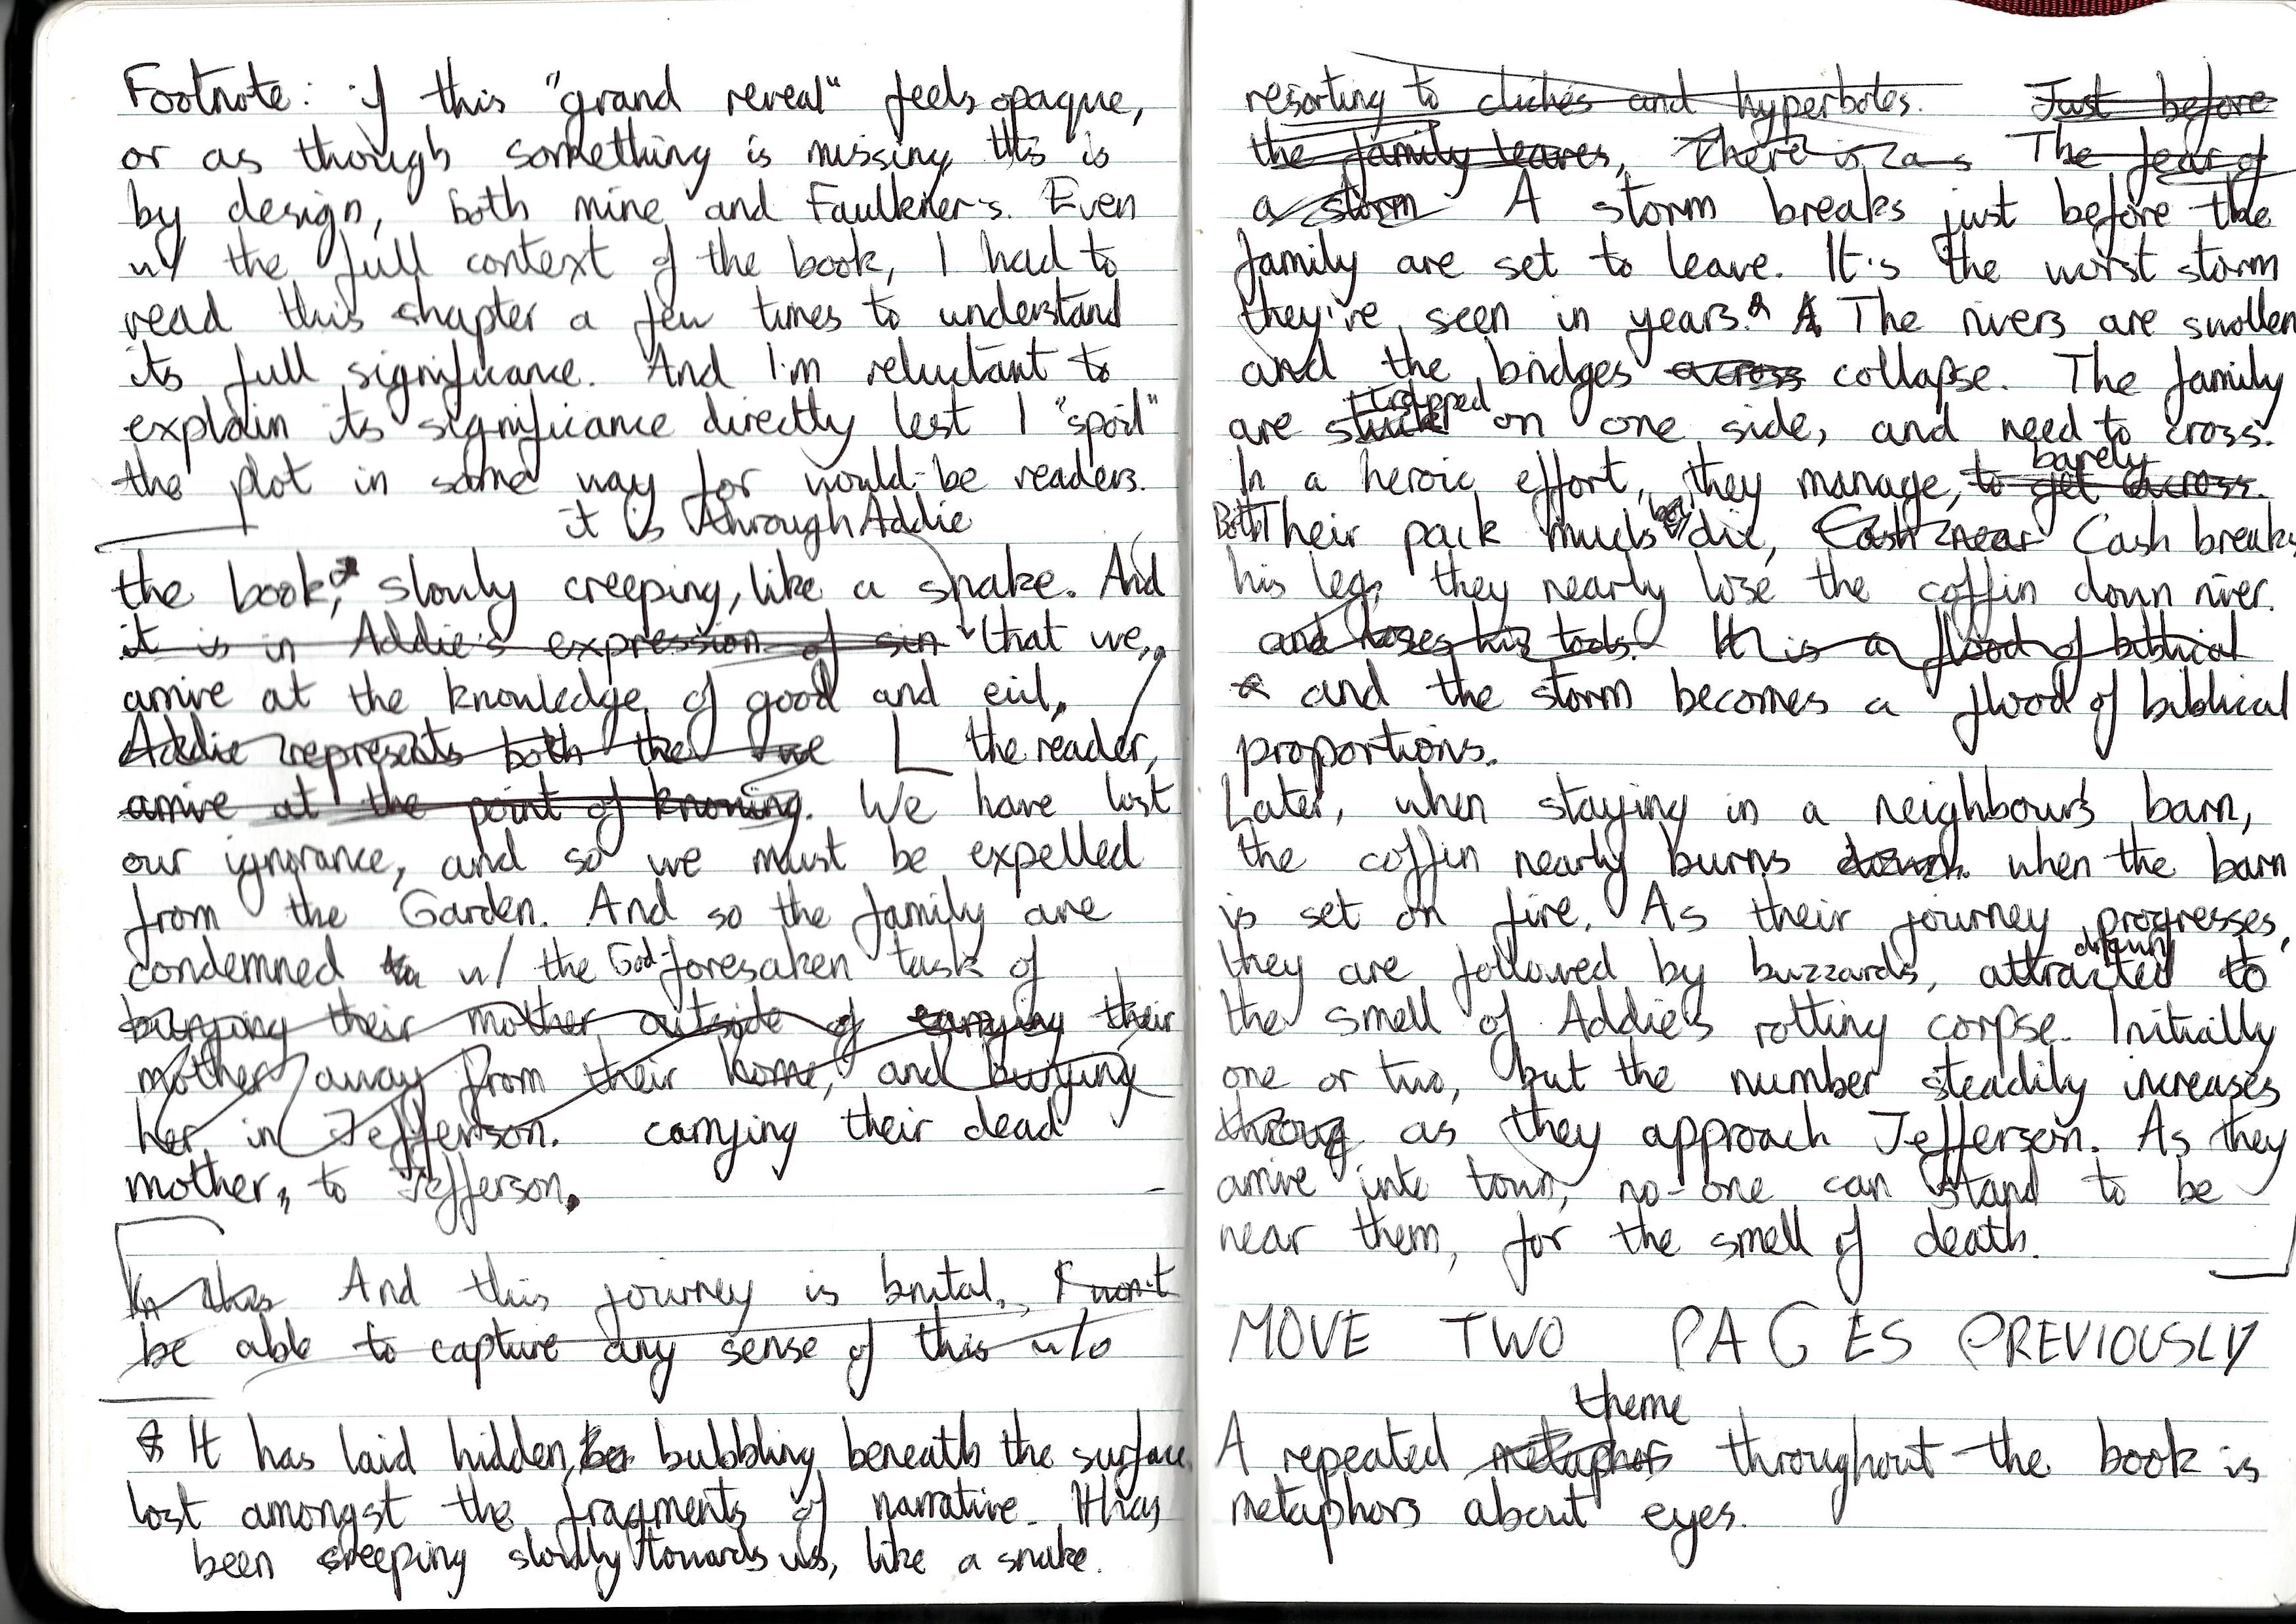 Footnote: if this "grand reveal" feels opaque,
or as though something is missing, this is
by design, both mine and Faulkner's. Even
w/ the full context of the book, I had to
read this chapter a few times to understand
its full significance. And I'm reluctant to
explain its significance directly lest I "spoil"
the plot in some way for would-be readers.
it is through Addie
the book, slowly creeping, like a snake. And
it is in Addie's expression of sin that we,
arrive at the knowledge of good and evil,
Addie represents both the we the reader,
arrive at the point of knowing. We have lost
our ignorance, and so we must be expelled
from the Garden. And so the family are
condemned to w/ the God-foresaken task of
burying their mother outside of carrying their
mother away from their home, and burying
her in Jefferson. carrying their dead
mother, to Jefferson.
In this And this journey is brutal. I won't
be able to capture any sense of this w/o
It has laid hidden, bubbling beneath the surface
lost amongst the fragments of narrative. It has
been creeping slowly towards us, like a snake.
resorting to clichés and hyperboles. Just before
the family leaves, There is a The fear of
a storm A storm breaks just before the
family are set to leave. It's the worst storm
they've seen in years. A The rivers are swollen
and the bridges across collapse. The family
trapped
are stuck on one side, and need to cross.
barely
In a heroic effort, they manage, to get across.
Both Their pack muels die, Cash near Cash breaks
his leg, they nearly lose the coffin down river.
and loses his tools. It is a flood of biblical
and the storm becomes a flood of biblical
proportions.
Later, when staying in a neighbour's barn,
the coffin nearly burns down. when the barn
is set on fire. As their journey progresses,
drawn
they are followed by buzzards, attracted to
the smell of Addie's rotting corpse. Initially
one or two, but the number steadily increases
throug as they approach Jefferson. As they
arrive into town, no-one can stand to be
near them, for the smell of death.
MOVE TWO PAGES PREVIOUSLY
theme
A repeated metaphor throughout the book is
metaphors about eyes.